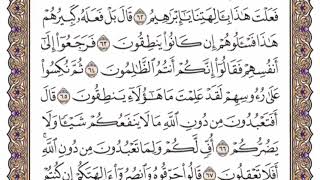 فَعَلْتَ هَٰذَا بِـَٔالِهَتِنَا يَٰٓإِبْرَٰهِيمُ ٦٢ قَالَ بَلْ فَعَلَهُۥ كَبِيرُهُمْ
هَٰذَا فَسْـَٔلُوهُمْ إِن كَانُوا۟ يَنطِقُونَ ٦٣ فَرَجَعُوٓا۟ إِلَىٰٓ
أَنفُسِهِمْ فَقَالُوٓا۟ إِنَّكُمْ أَنتُمُ ٱلظَّٰلِمُونَ ٦٤ ثُمَّ نُكِسُوا۟
عَلَىٰ رُءُوسِهِمْ لَقَدْ عَلِمْتَ مَا هَٰٓؤُلَآءِ يَنطِقُونَ ٦٥ قَالَ
أَفَتَعْبُدُونَ مِن دُونِ ٱللَّهِ مَا لَا يَنفَعُكُمْ شَيْـًٔا وَلَا
يَضُرُّكُمْ ٦٦ أُفٍّ لَّكُمْ وَلِمَا تَعْبُدُونَ مِن دُونِ ٱللَّهِ
أَفَلَا تَعْقِلُونَ ٦٧ قَالُوا۟ حَرِّقُوهُ وَٱنصُرُوٓا۟ ءَالِهَتَكُمْ إِن كُنتُمْ